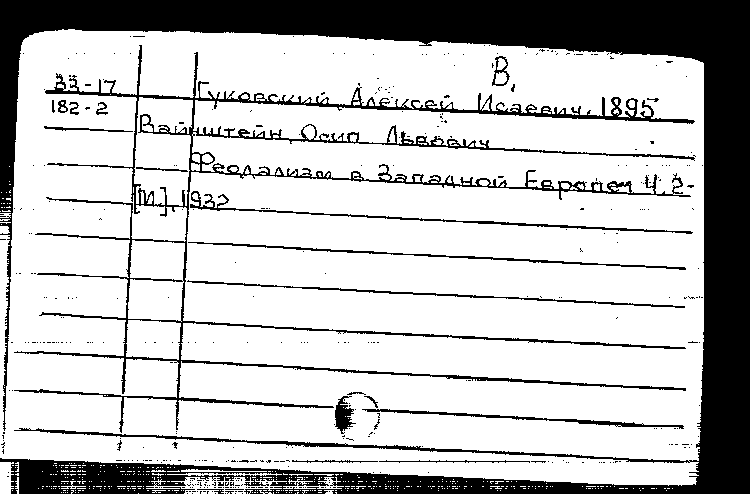 В.
33-17 Гуковский, Алексей Исаевич, 1895
182-2
Вайнштейн, Осип Львович
Феодализм в Западной Европе Ч. 2-
[М.], 1932